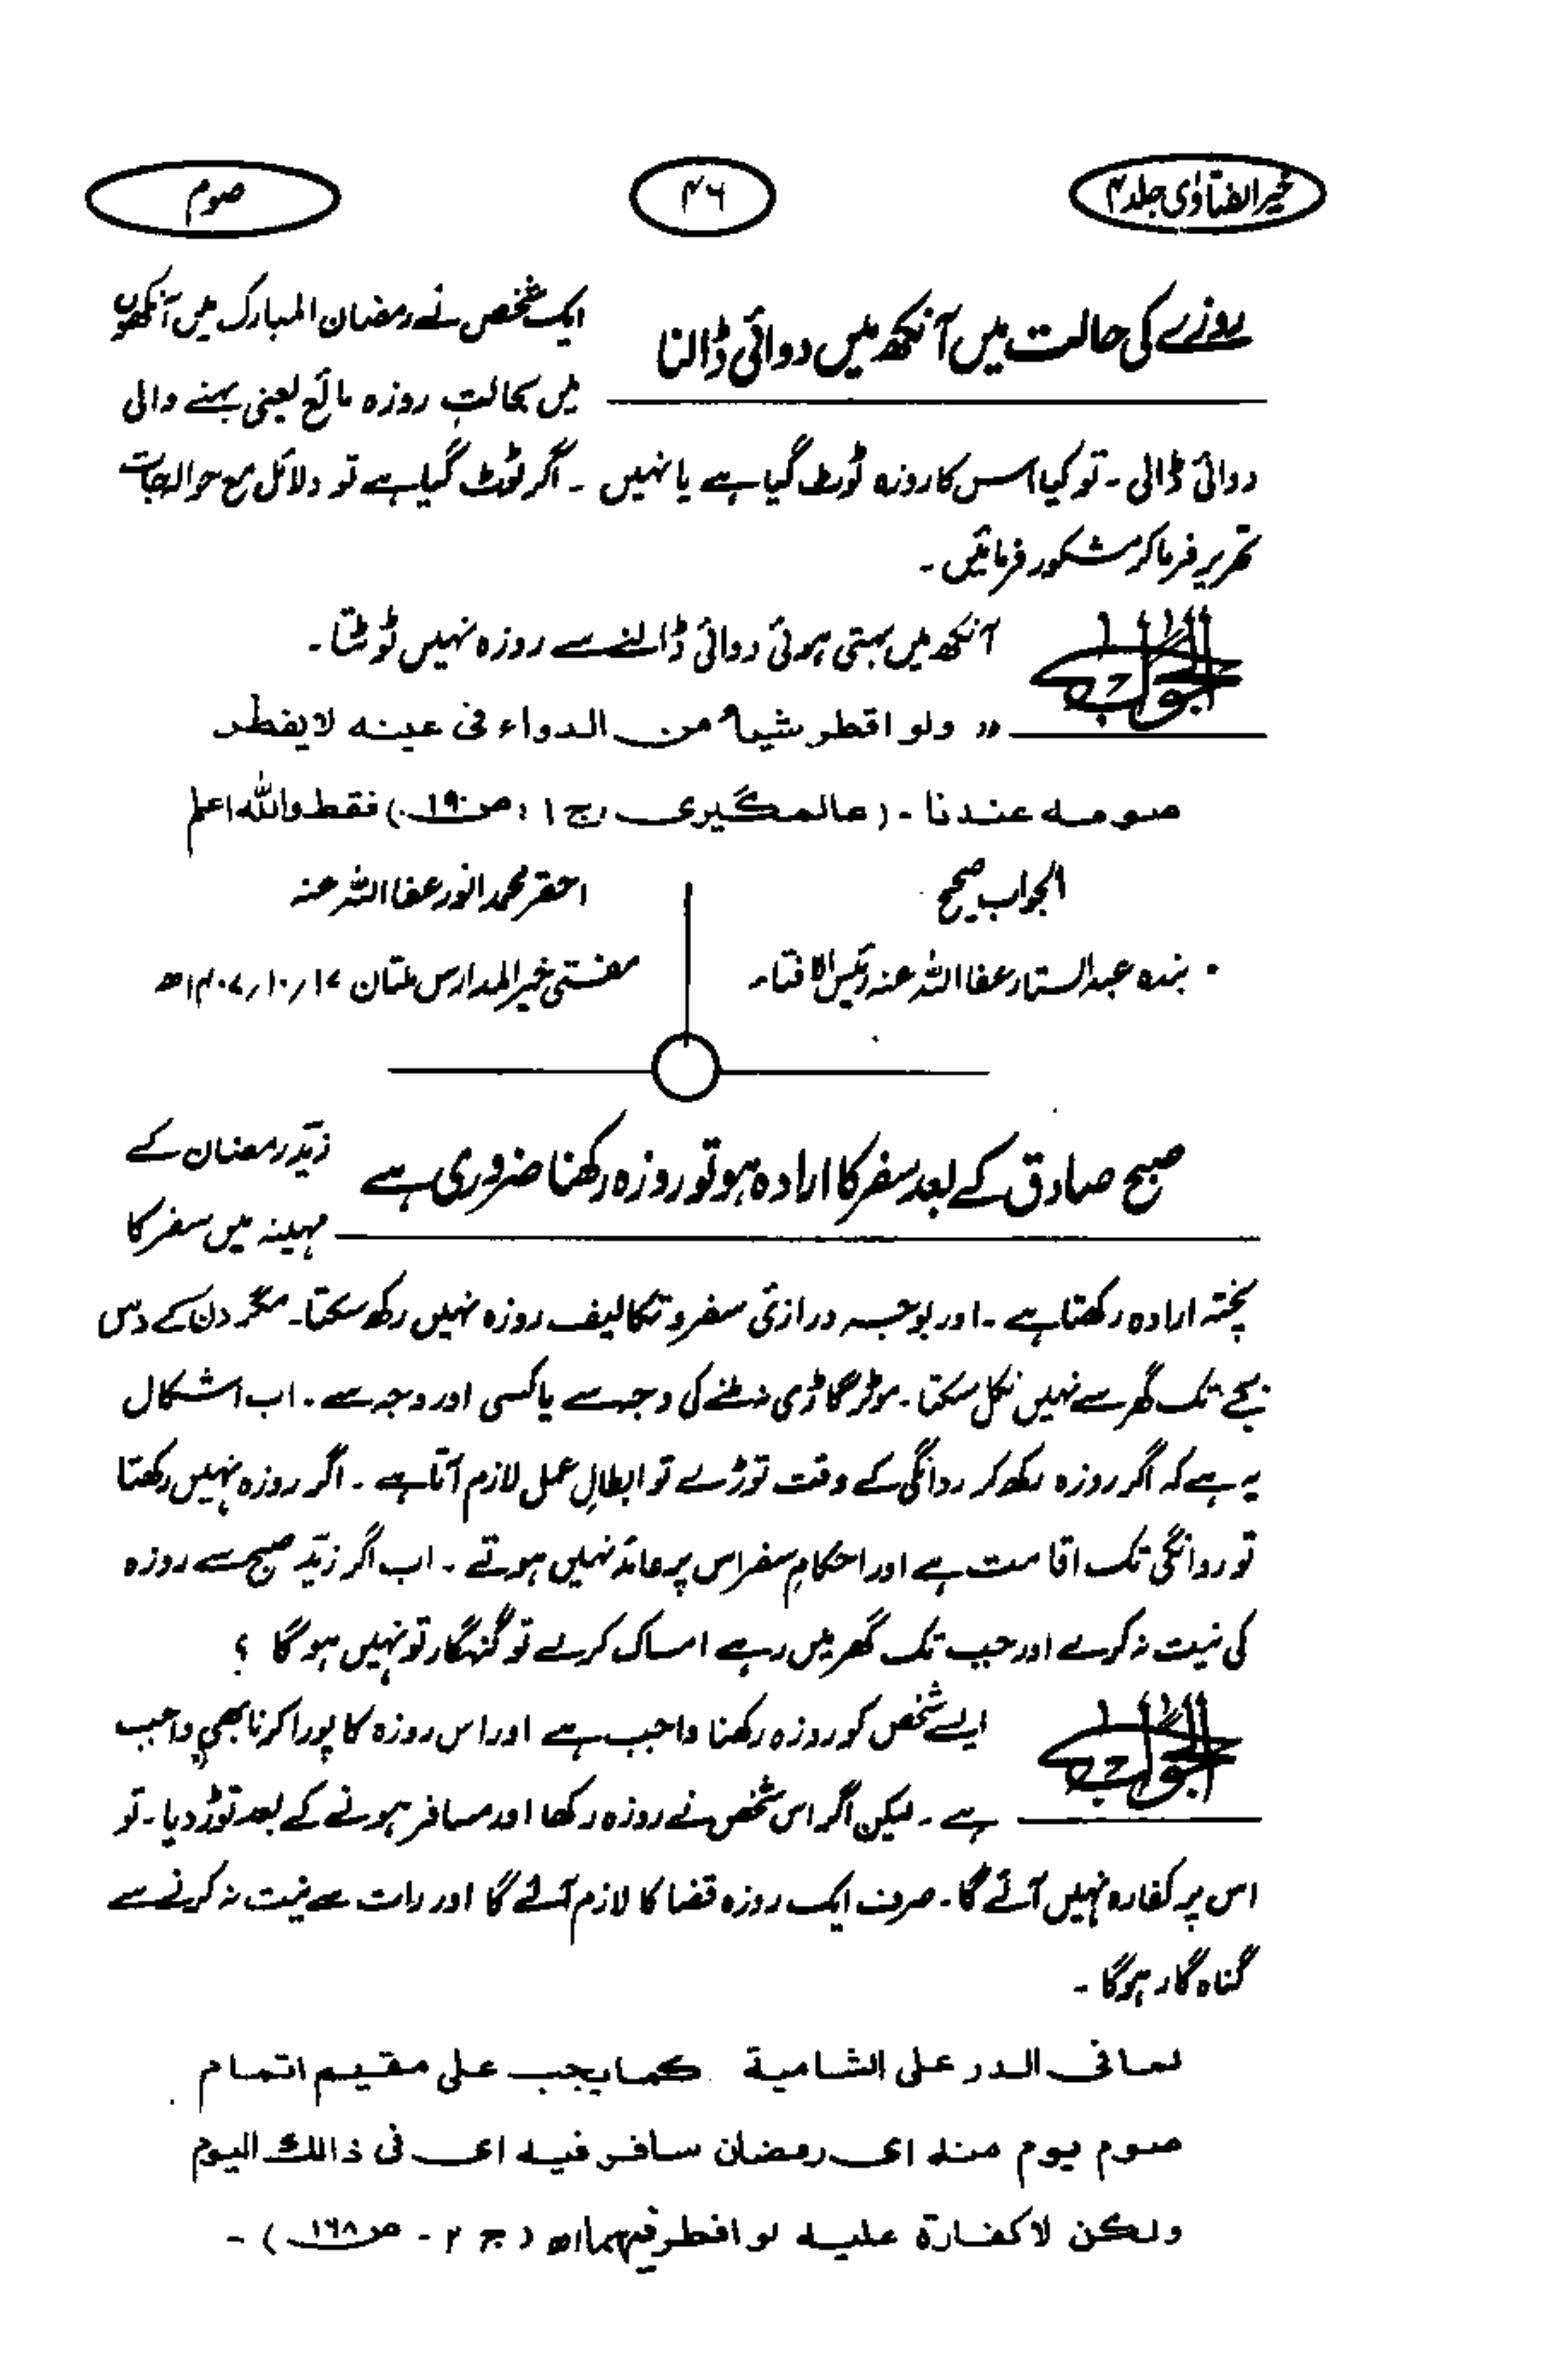 خیر الفتاویٰ جلد ۴
۴۶
صوم
روزے کی حالت میں آنکھ میں دوائی ڈالنا
ایک شخص نے رمضان المبارک میں آنکھوں
میں بحالتِ روزہ مائع یعنی بہنے والی
دوائی ڈالی ۔ تو کیا اس کا روزہ ٹوٹ گیا ہے یا نہیں ۔ اگر ٹوٹ گیا ہے تو دلائل مع حوالہ جات
تحریر فرما کر مشکور فرمائیں ۔
الجواب
آنکھ میں بہتی ہوئی دوائی ڈالنے سے روزہ نہیں ٹوٹتا ۔
” ولو اقطر شیئا من الدواء فی عینہ لا یفطر
صومہ عندنا ۔ (عالمگیری ج ۱ ، ص ۱۹۰) فقط واللہ اعلم
الجواب صحیح
احقر محمد انور عفا اللہ عنہ
بندہ عبد الستار عفا اللہ عنہ رئیس الافتاء
مفتی خیر المدارس ملتان ۱۷/۱۰/۱۴۰۷ھ
صبح صادق کے بعد سفر کا ارادہ ہو تو روزہ رکھنا ضروری ہے
زید رمضان کے
مہینہ میں سفر کا
پختہ ارادہ رکھتا ہے ۔ اور بوجہ درازئ سفر و تکالیف روزہ نہیں رکھ سکتا ۔ مگر دن کے دس
بجے تک گھر سے نہیں نکل سکتا ۔ موٹر گاڑی نہ ملنے کی وجہ سے یا کسی اور وجہ سے ۔ اب اشکال
یہ ہے کہ اگر روزہ رکھ کر روانگی کے وقت توڑے تو ابطالِ عمل لازم آتا ہے ۔ اگر روزہ نہیں رکھتا
تو روانگی تک اقامت ہے اور احکامِ سفر اس پر عائد نہیں ہوتے ۔ اب اگر زید صبح سے روزہ
کی نیت نہ کرے اور جب تک گھر میں رہے امساک کرلے تو گنہگار تو نہیں ہوگا ؟
الجواب
ایسے شخص کو روزہ رکھنا واجب ہے اور اس روزہ کا پورا کرنا بھی واجب
ہے ۔ لیکن اگر اس شخص نے روزہ رکھا اور مسافر ہونے کے بعد توڑ دیا ۔ تو
اس پر کفارہ نہیں آئے گا ۔ صرف ایک روزہ قضا کا لازم آئے گا اور رات سے نیت نہ کرنے سے
گناہ گار ہوگا ۔
لما فی الدر علی الشامیة کما یجب علی مقیم اتمام
صوم یوم منہ ای رمضان سافر فیہ ای فی ذالک الیوم
ولکن لا کفارة علیہ لو افطر فیهما اھ ( ج ۲ ۔ ص ۱۶۸ ) ۔